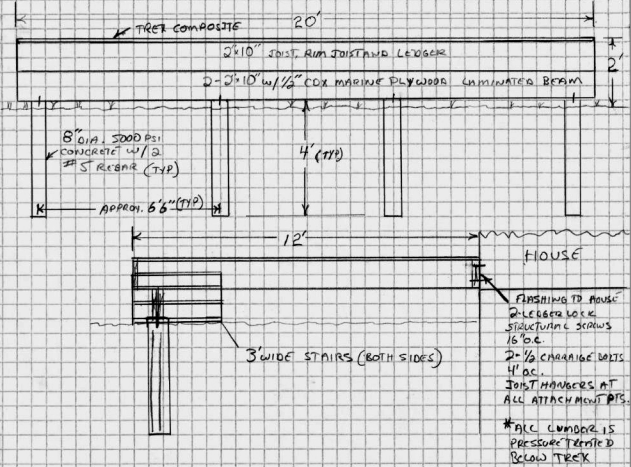 20'
TREX COMPOSITE
2"x10" JOIST, RIM JOIST AND LEDGER
2'
2-2"x10" W/ 1/2" CDX MARINE PLYWOOD LAMINATED BEAM
8" DIA. 5000 PSI
CONCRETE W/2
#5 REBAR (TYP)
4' (TYP)
APPROX. 6'6" (TYP)
12'
HOUSE
FLASHING TO HOUSE
2-LEDGER LOCK
STRUCTURAL SCREWS
16" O.C.
2-1/2 CARRAIGE BOLTS
4' O.C.
JOIST HANGERS AT
ALL ATTACHMENT PTS.
3' WIDE STAIRS (BOTH SIDES)
*ALL LUMBER IS
PRESSURE TREATED
BELOW TREX